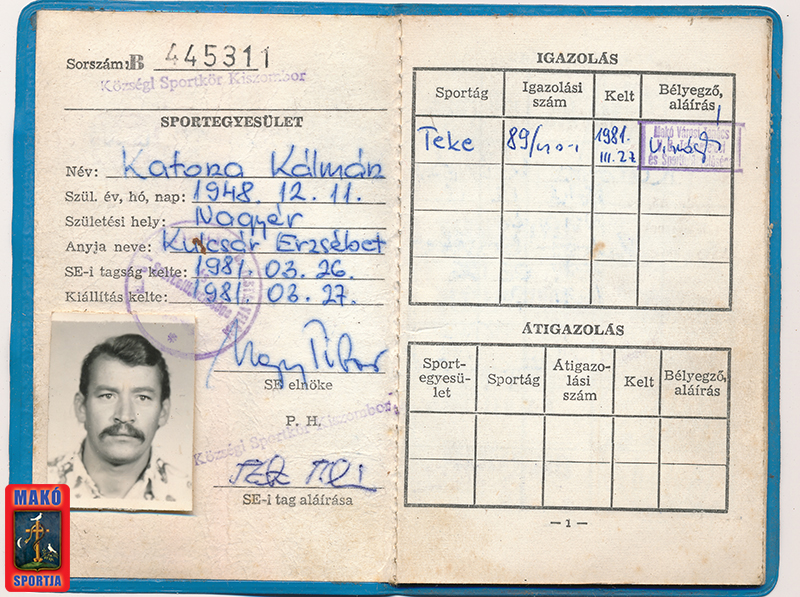 Sorszám: B 445311
Községi Sportkör Kiszombor
SPORTEGYESÜLET
Név: Katona Kálmán
Szül. év, hó, nap: 1948. 12. 11.
Születési hely: Nagyér
Anyja neve: Kulcsár Erzsébet
SE-i tagság kelte: 1981. 03. 26.
Kiállítás kelte: 1981. 03. 27.
Nagy Tibor
SE elnöke
P. H.
Községi Sportkör Kiszombor
SE-i tag aláírása
MAKÓ
SPORTJA
IGAZOLÁS
Sportág Igazolási szám Kelt Bélyegző, aláírás
Teke 1981. III. 27
Makó Városi
és Sport
ÁTIGAZOLÁS
Sport-egyesü-let Sportág Átigazo-lási szám Kelt Bélyegző, aláírás
— 1 —